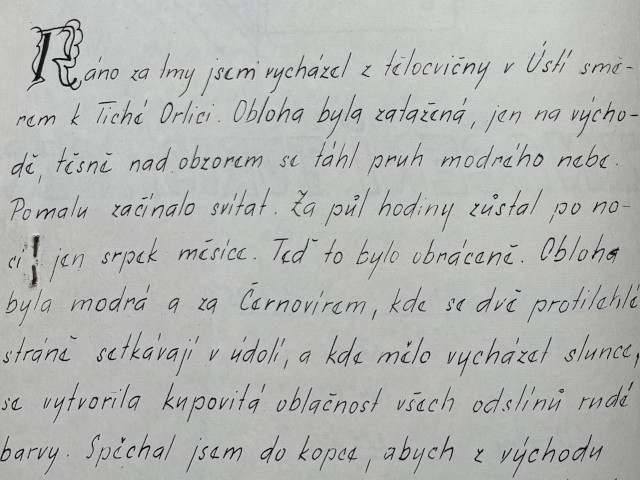 Ráno za tmy jsem vycházel z tělocvičny v Ústí smě-
rem k Tiché Orlici. Obloha byla zatažená, jen na výcho-
dě, těsně nad obzorem se táhl pruh modrého nebe.
Pomalu začínalo svítat. Za půl hodiny zůstal po no-
ci jen srpek měsíce. Teď to bylo obráceně. Obloha
byla modrá a za Černovírem, kde se dvě protilehlé
stráně setkávají v údolí, a kde mělo vycházet slunce,
se vytvořila kupovitá oblačnost všech odstínů rudé
barvy. Spěchal jsem do kopce, abych z východu